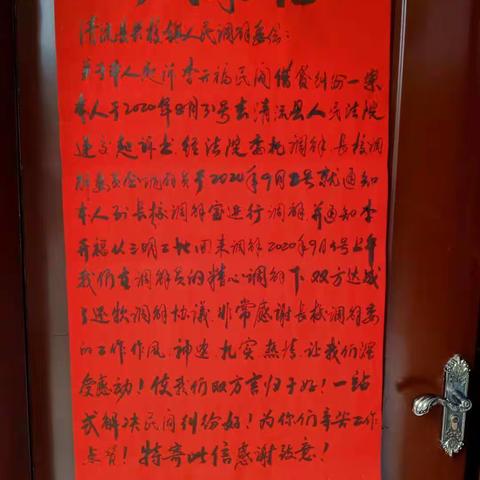 清流县长校镇人民调解委会:
关于本人起诉李开福民间借贷纠纷一案
本人于2020年8月31号去清流县人民法院
递交起诉书.经法院委托调解,长校调
解委员会调解员于2020年9月2号就通知
本人到长校调解室进行调解并通知李
开福从三明工地回来调解2020年9月4号上午
我们在调解员的精心调解下.双方达成
了还款调解协议.非常感谢长校调解委
的工作作风.神速.扎实.热情.让我们深
受感动!使我们双方言归于好!一站
式解决民间纠纷好!为你们辛苦工作
点赞!特寄此信感谢致意!